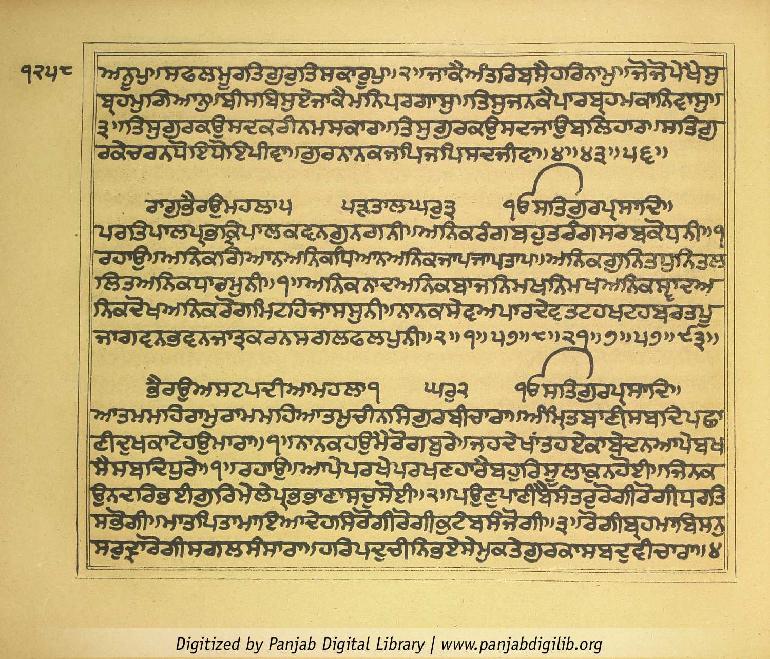 ੧੨੫੮
ਅਨੂਪੁ॥ਸਫਲਮੂਰਤਿਗੁਰੁਤਿਸਕਾਰੂਪੁ॥੨॥ਜਾਕੈਅੰਤਰਿਬਸੈਹਰਿਨਾਮੁ॥ਜੋਜੋਪੇਖੈਸੁ
ਬ੍ਰਹਮੁਗਿਆਨੁ॥ਬੀਸਬਿਸੁਏਜਾਕੈਮਨਿਪਰਗਾਸੁ॥ਤਿਸੁਜਨਕੈਪਾਰਬ੍ਰਹਮਕਾਨਿਵਾਸੁ॥
੩॥ਤਿਸੁਗੁਰਕਉਸਦਕਰੀਨਮਸਕਾਰ॥ਤਿਸੁਗੁਰਕਉਸਦਜਾਉਬਲਿਹਾਰ॥ਸਤਿਗੁ
ਰਕੇਚਰਨਧੋਇਧੋਇਪੀਵਾ॥ਗੁਰਨਾਨਕਜਪਿਜਪਿਸਦਜੀਵਾ॥੪॥੪੩॥੫੬॥
ਰਾਗੁਭੈਰਉਮਹਲਾ੫ ਪੜਤਾਲਘਰੁ੩ ੴਸਤਿਗੁਰਪ੍ਰਸਾਦਿ॥
ਪਰਤਿਪਾਲਪ੍ਰਭਕ੍ਰਿਪਾਲਕਵਨਗੁਨਗਨੀ॥ਅਨਿਕਰੰਗਬਹੁਤਰੰਗਸਰਬਕੋਧਨੀ॥੧
ਰਹਾਉ॥ਅਨਿਕਗਿਆਨਅਨਿਕਧਿਆਨਅਨਿਕਜਾਪਜਾਪਤਾਪ॥ਅਨਿਕਗੁਨਿਤਧੁਨਿਤਲ
ਲਿਤਅਨਿਕਧਾਰਮੁਨੀ॥੧॥ਅਨਿਕਨਾਦਅਨਿਕਬਾਜਨਿਮਖਨਿਮਖਅਨਿਕਸ੍ਵਾਦਅ
ਨਿਕਦੋਖਅਨਿਕਰੋਗਮਿਟਹਿਜਸਸੁਨੀ॥ਨਾਨਕਸੇਵਅਪਾਰਦੇਵਤਟਹਖਟਹਬਰਤਪੂ
ਜਾਗਵਨਭਵਨਜਾਤ੍ਰਕਰਨਸਗਲਫਲਪੁਨੀ॥੨॥੧॥੫੭॥੮॥੨੧॥੭॥੫੭॥੯੩॥
ਭੈਰਉਅਸਟਪਦੀਆਮਹਲਾ੧ ਘਰੁ੨ ੴਸਤਿਗੁਰਪ੍ਰਸਾਦਿ॥
ਆਤਮਮਹਿਰਾਮੁਰਾਮਮਹਿਆਤਮੁਚੀਨਸਿਗੁਰਬੀਚਾਰਾ॥ਅੰਮ੍ਰਿਤਬਾਣੀਸਬਦਿਪਛਾ
ਣੀਦੁਖਕਾਟੈਹਉਮਾਰਾ॥੧॥ਨਾਨਕਹਉਮੈਰੋਗਬੁਰੇ॥ਜਹਦੇਖਾਂਤਹਏਕਾਬੇਦਨਆਪੇਬਖ
ਸੈਸਬਦਿਧੁਰੇ॥੧॥ਰਹਾਉ॥ਆਪੇਪਰਖੇਪਰਖਣਹਾਰੈਬਹੁਰਿਸੂਲਾਕੁਨਹੋਈ॥ਜਿਨਕ
ਉਨਦਰਿਭਈਗੁਰਿਮੇਲੇਪ੍ਰਭਭਾਣਾਸਚੁਸੋਈ॥੨॥ਪਉਣੁਪਾਣੀਬੈਸੰਤਰੁਰੋਗੀਰੋਗੀਧਰਤਿ
ਸਭੋਗੀ॥ਮਾਤਪਿਤਾਮਾਇਆਦੇਹਸਿਰੋਗੀਰੋਗੀਕੁਟੰਬਸੰਜੋਗੀ॥੩॥ਰੋਗੀਬ੍ਰਹਮਾਬਿਸਨੁ
ਸਰੁਦ੍ਰਾਰੋਗੀਸਗਲਸੰਸਾਰਾ॥ਹਰਿਪਦੁਚੀਨਿਭਏਸੇਮੁਕਤੇਗੁਰਕਾਸਬਦੁਵੀਚਾਰਾ॥੪
Digitized by Panjab Digital Library | www.panjabdigilib.org